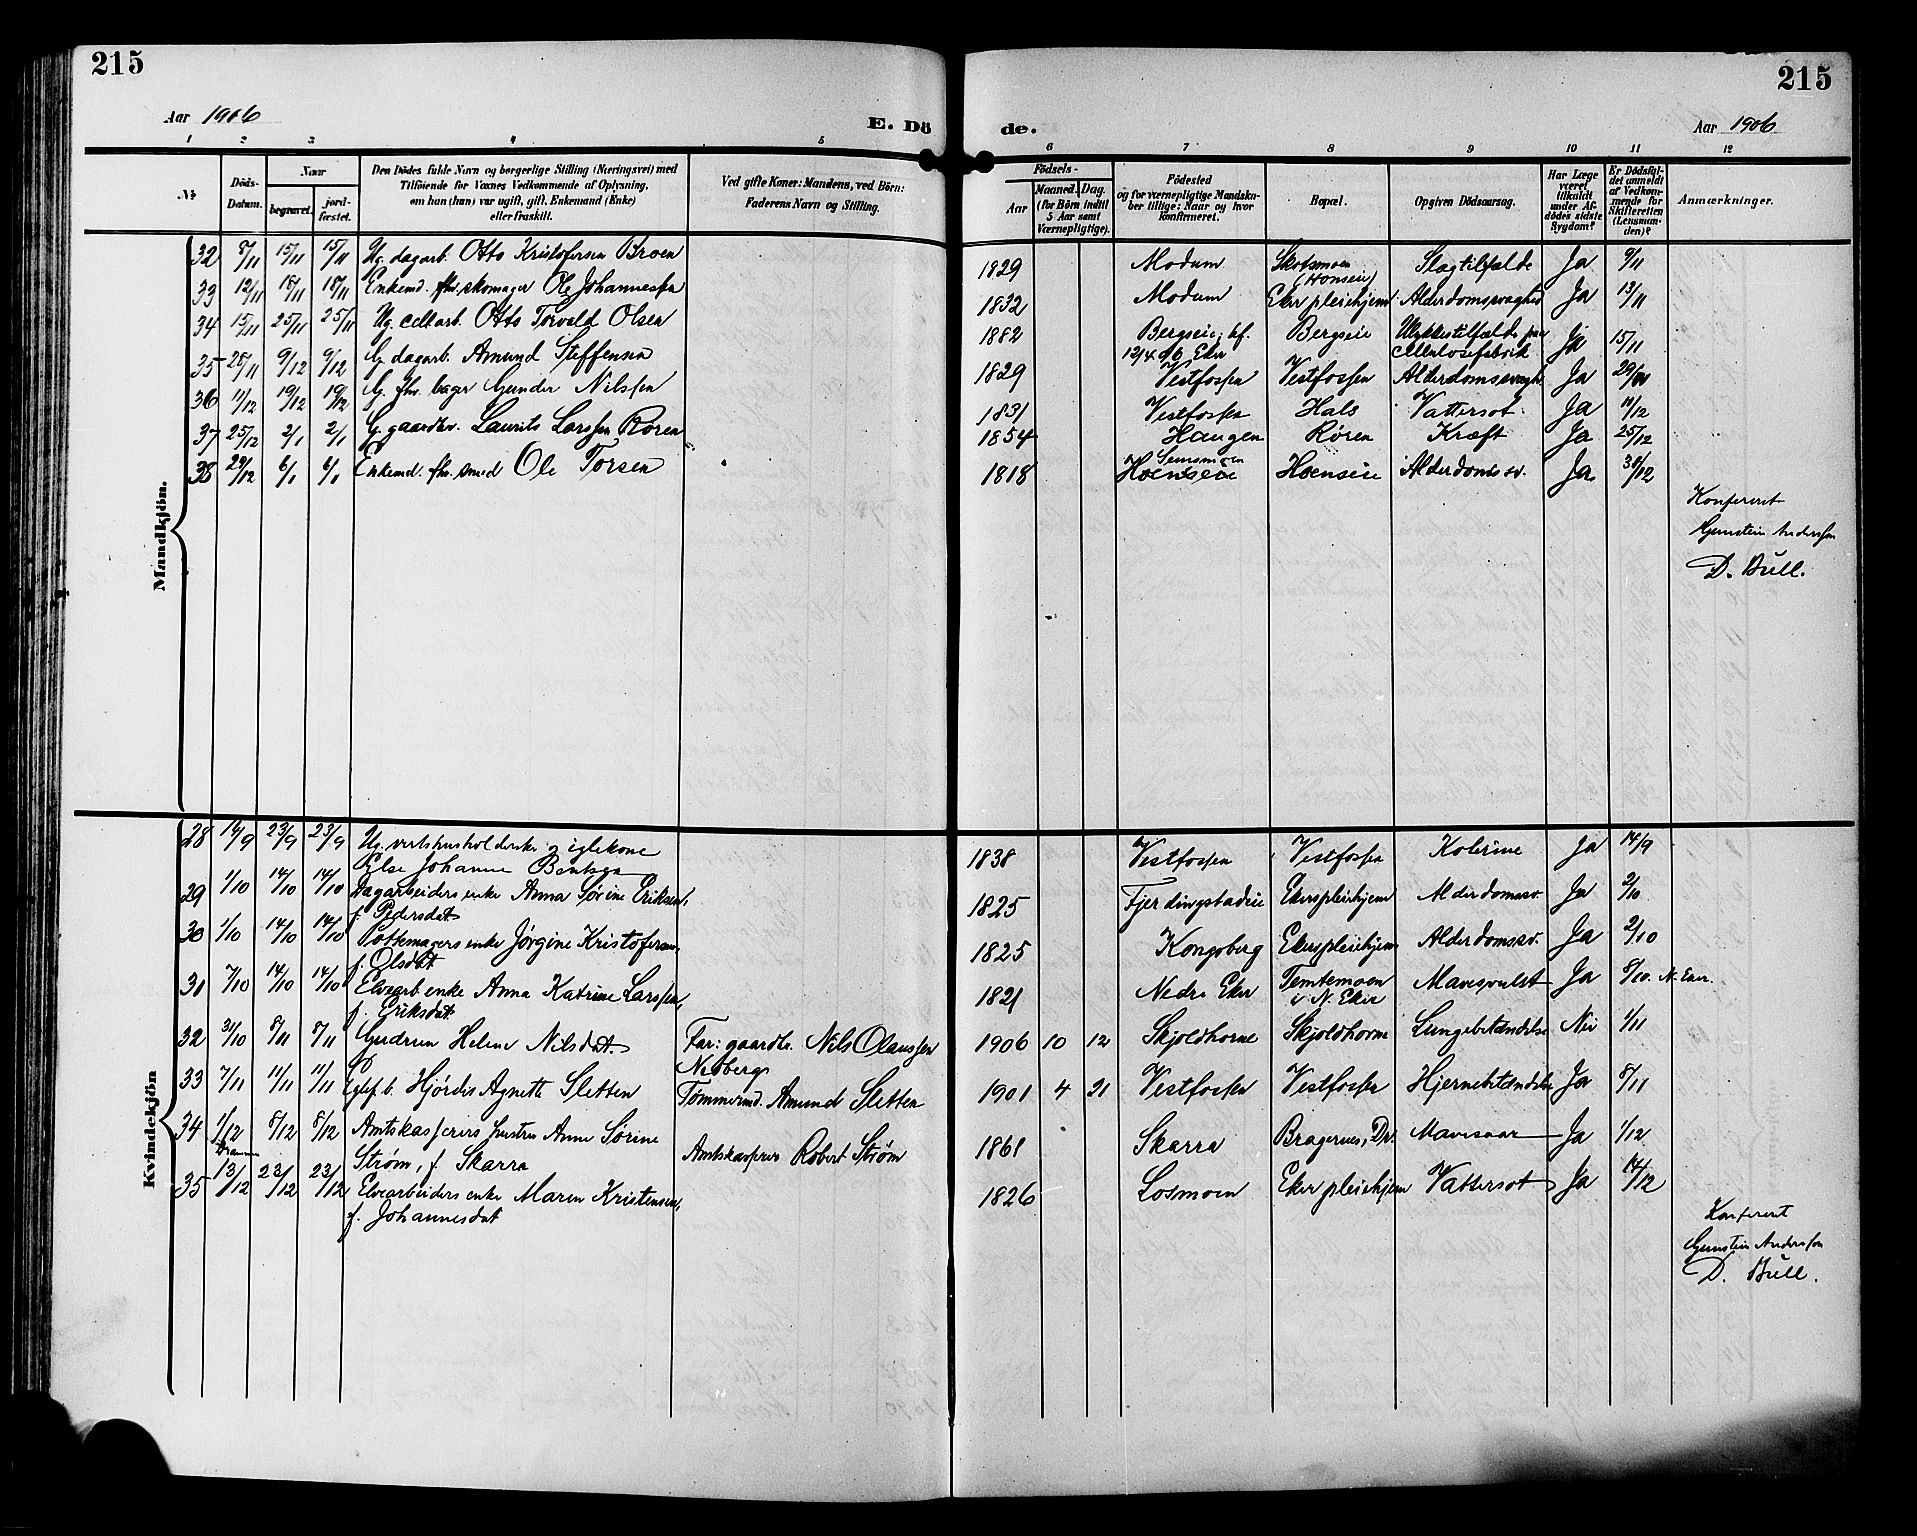 215
215
Aar 1906
E. Dö
de.
Aar 1906
1 2 3 4 5 6 7 8 9 10 11 12
No.
Döds-Datum.
Naar
begravet.
jord-fæstet.
Den Dödes fulde Navn og borgerlige Stilling (Næringsvei) med
Tilföiende for Voxnes Vedkommende af Oplysning,
om han (hun) var ugift, gift, Enkemand (Enke)
eller fraskilt.
Ved gifte Koner: Mandens, ved Börn:
Faderens Navn og Stilling.
Födsels-
Aar
Maaned. Dag.
(for Börn indtil
5 Aar samt
Værnepligtige).
Födested
og for værnepligtige Mandska-
ber tillige: Naar og hvor
konfirmeret.
Bopæl.
Opgiven Dödsaarsag.
Har Læge
været
tilkaldt
under Af-
dödes sidste
Sygdom?
Er Dödsfal-
det anmeldt
af Vedkom-
mende for
Skifteretten
(Lensman-
den)?
Anmærkninger.
Mandkjön.
32 8/11 15/11 15/11 Ug. dagarb. Otto Kristofersen Broen 1829 Modum Skotsmoen (Honseie) Slagtilfælde Ja 9/11
33 12/11 18/11 18/11 Enkemd. fhv. skomager Ole Johannessen 1832 Modum Eker pleiehjem Alderdomssvaghed Ja 13/11
34 15/11 25/11 25/11 Ug. cellarb. Otto Torvald Olsen 1882 Bergseie; kf. 12/4 96 Eker Bergseie Ulykkestilfælde paa Cellulosefabrik Ja 15/11
35 28/11 9/12 9/12 G. dagarb. Amund Steffensen 1829 Vestfossen Vestfossen Alderdomssvagh. Ja 29/11
36 11/12 19/12 19/12 G. fhv. bager Gunder Nilssen 1831 Vestfossen Hals Vattersot. Ja 11/12
37 25/12 2/1 2/1 G. gaardbr. Laurits Larssen Røren 1854 Haugen Røren Kræft Ja 25/12
38 29/12 6/1 6/1 Enkemd. fhv. smed Ole Torsen 1818 Semsmoen Hoenseie Hoenseie Alderdomssv. Ja 31/12
Konfereret
Gunstein Anderssen
D. Bull.
Kvindekjön
28 14/9 23/9 23/9 Ug. vertshusholderske og iglekone
Else Johanne Bentsen 1838 Vestfossen Vestfossen Kolerine Ja 14/9
29 1/10 14/10 14/10 Dagarbeiders enke Anna Sørine Eriksen,
f. Pedersdat. 1825 Fjerdingstadeie Ekerspleiehjem Alderdomssv. Ja 2/10
30 1/10 14/10 14/10 Pottemagers enke Jørgine Kristofersen,
f. Olsdat. 1825 Kongsberg Ekerspleiehjem Alderdomssv. Ja 2/10
31 7/10 14/10 14/10 Elvearb. enke Anna Katrine Larssen,
f. Eriksdat. 1821 Nedre Eker Temtemoen i N. Eker Mavesvulst Ja 8/10. N. Eker.
32 31/10 8/11 8/11 Gudrun Helene Nilsdat. Far: gaardbr. Nils Olaussen
Nedberg 1906 10 12 Skjoldhorne Skjoldhorne Lungebetændelse Nei 1/11
33 7/11 11/11 11/11 Egtef. b. Hjørdis Agnette Sletten Tømmermd. Amund Sletten 1901 4 21 Vestfossen Vestfossen Hjernebetændelse Ja 8/11
34 1/12 Drammen 8/12 8/12 Amtskasserers hustru Anne Sørine
Strøm, f. Skarra Amtskasserer Robert Strøm 1861 Skarra Bragernes, Dr. Mavesaar Ja 1/12
35 13/12 23/12 23/12 Elvearbeiders enke Maren Kristensen,
f. Johannesdat 1826 Losmoen Eker pleiehjem Vattersot Ja 14/12
Konfereret
Gunstein Anderssen
D. Bull.